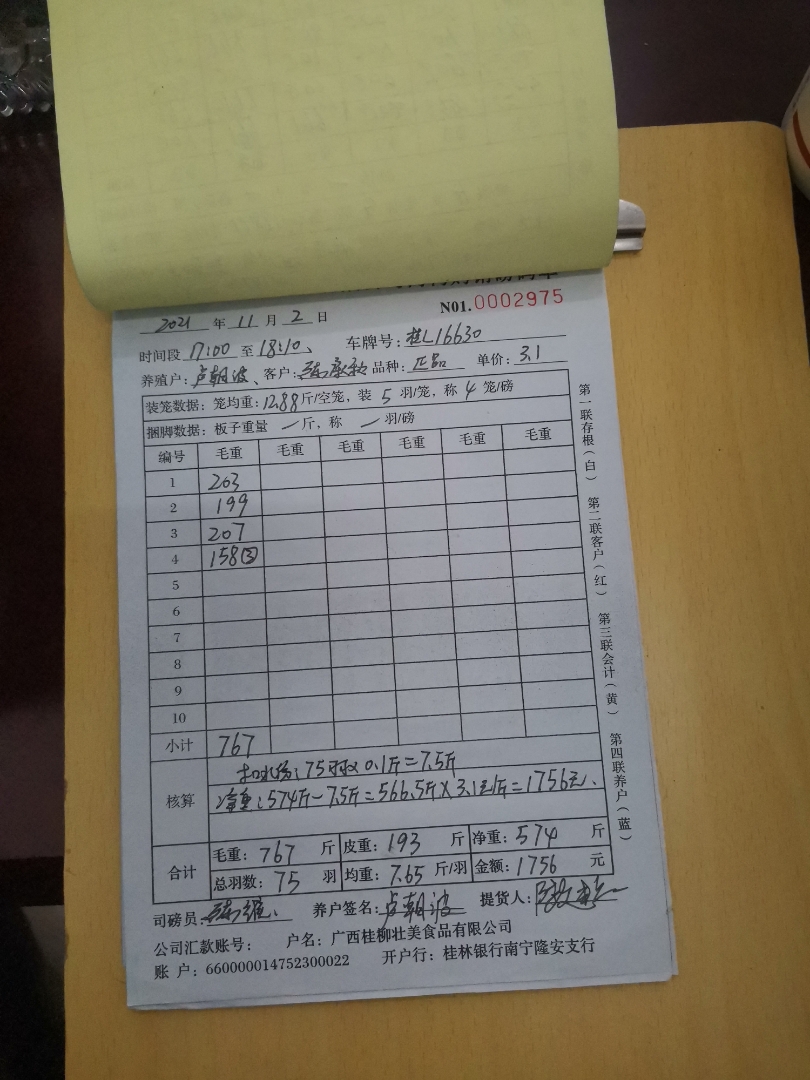 N01.0002975
2021 年 11 月 2 日
时间段 17:00 至 18:10、 车牌号: 桂L16630
养殖户: 卢朝波、客户: 品种: 正品 单价: 3.1
装笼数据: 笼均重: 12.88 斤/空笼, 装 5 羽/笼, 称 4 笼/磅
捆脚数据: 板子重量 一 斤, 称 一 羽/磅
编号 毛重 毛重 毛重 毛重 毛重 毛重
1 203
2 199
3 207
4 158③
5
6
7
8
9
10
小计 767
核算
75羽×0.1斤=7.5斤
净重:574斤-7.5斤=566.5斤×3.1元/斤=1756元、
合计
毛重: 767 斤 皮重: 193 斤 净重: 574 斤
总羽数: 75 羽 均重: 7.65 斤/羽 金额: 1756 元
司磅员: 养户签名: 卢朝波 提货人:
公司汇款账号: 户名: 广西桂柳壮美食品有限公司
账 户: 660000014752300022 开户行: 桂林银行南宁隆安支行
第一联存根(白) 第二联客户(红) 第三联会计(黄) 第四联养户(蓝)